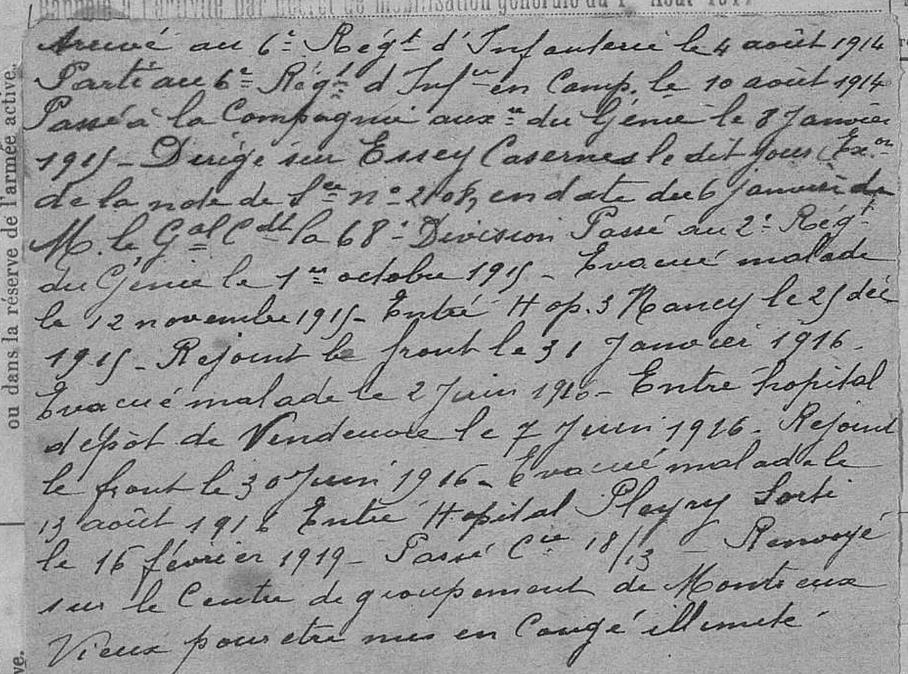 Rappelé à l'activité par décret de mobilisation générale du 1er Août 1914
Arrivé au 6e Régt d'Infanterie le 4 août 1914
Parti au 6e Régt d'Infie en Camp. le 10 août 1914
Passé à la Compagnie auxre du Génie le 8 Janvier
1915 - Dirigé sur Essey Casernes le dit jour (Exon
de la note de Sce no 2108, en date du 6 janvier de
M. le Gal Cdt la 68e Division Passé au 2e Régt
du Génie le 1er octobre 1915 - Evacué malade
le 12 novembre 1915 - Entré Hop. 3 Nancy le 25 déc
1915 - Rejoint le front le 31 Janvier 1916 -
Evacué malade le 2 Juin 1916 - Entré hopital
dépôt de Vendeuvre le 7 Juin 1916 - Rejoint
le front le 30 Juin 1916 - Evacué malade le
13 août 1916 Entré Hopital Sorti
le 16 février 1919 - Passé Cie 18/13 - Renvoyé
sur le Centre de groupement de Montreux
Vieux pour etre mis en Congé illimité -
ou dans la réserve de l'armée active.
ve.